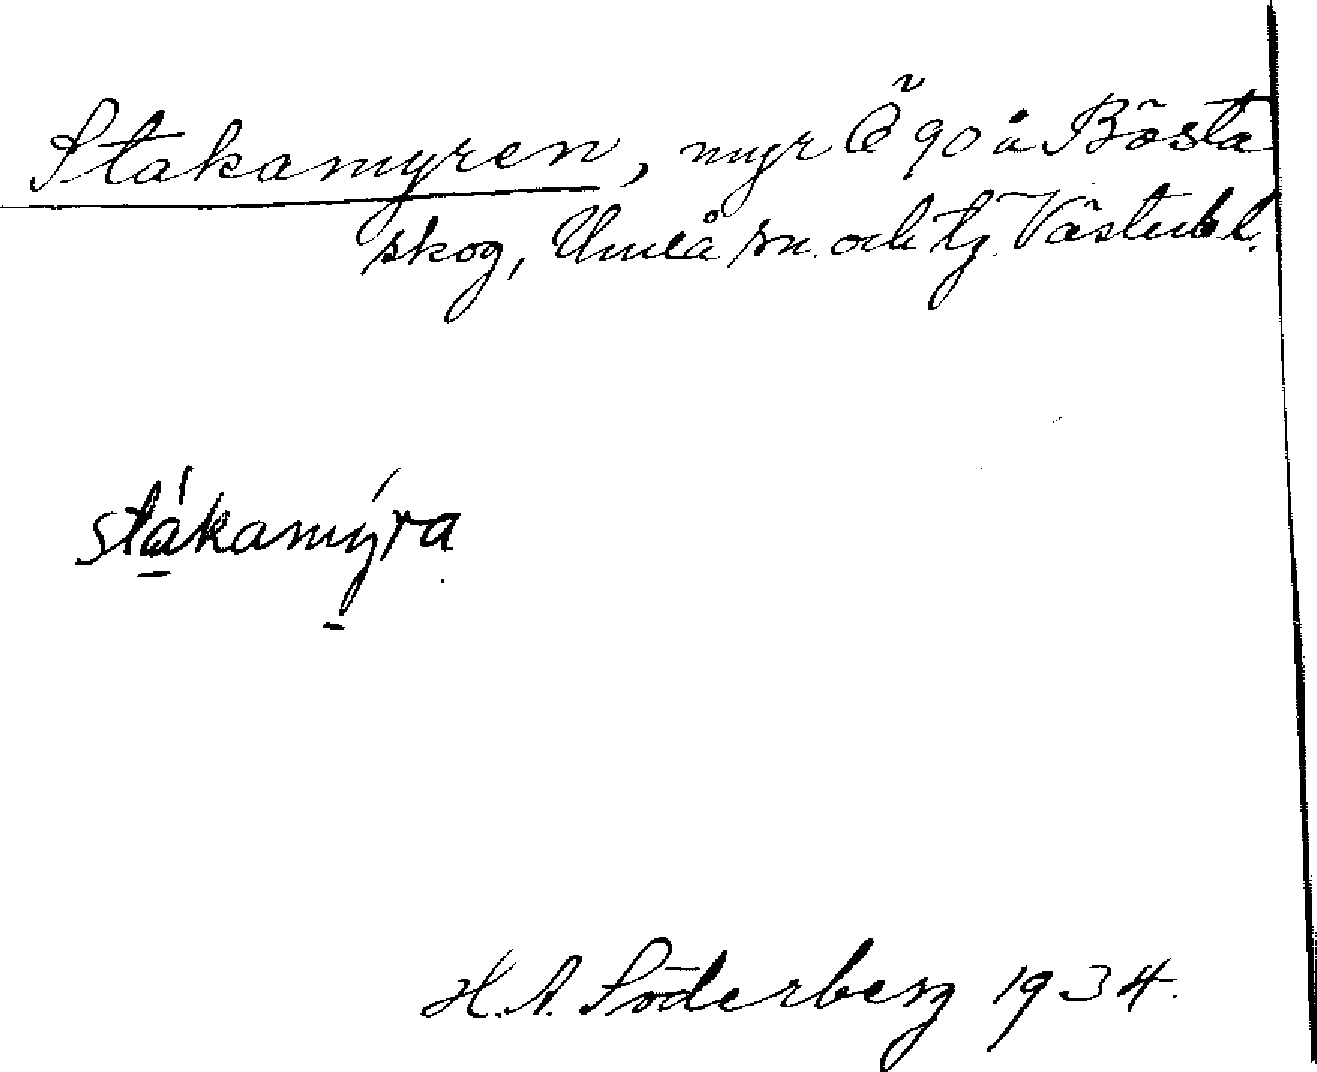 Stakamyren, myr Ö 90 å Bösta
skog, Umeå sn. och tg. Västerbl.
stákamýra
H. A. Söderberg 1934.